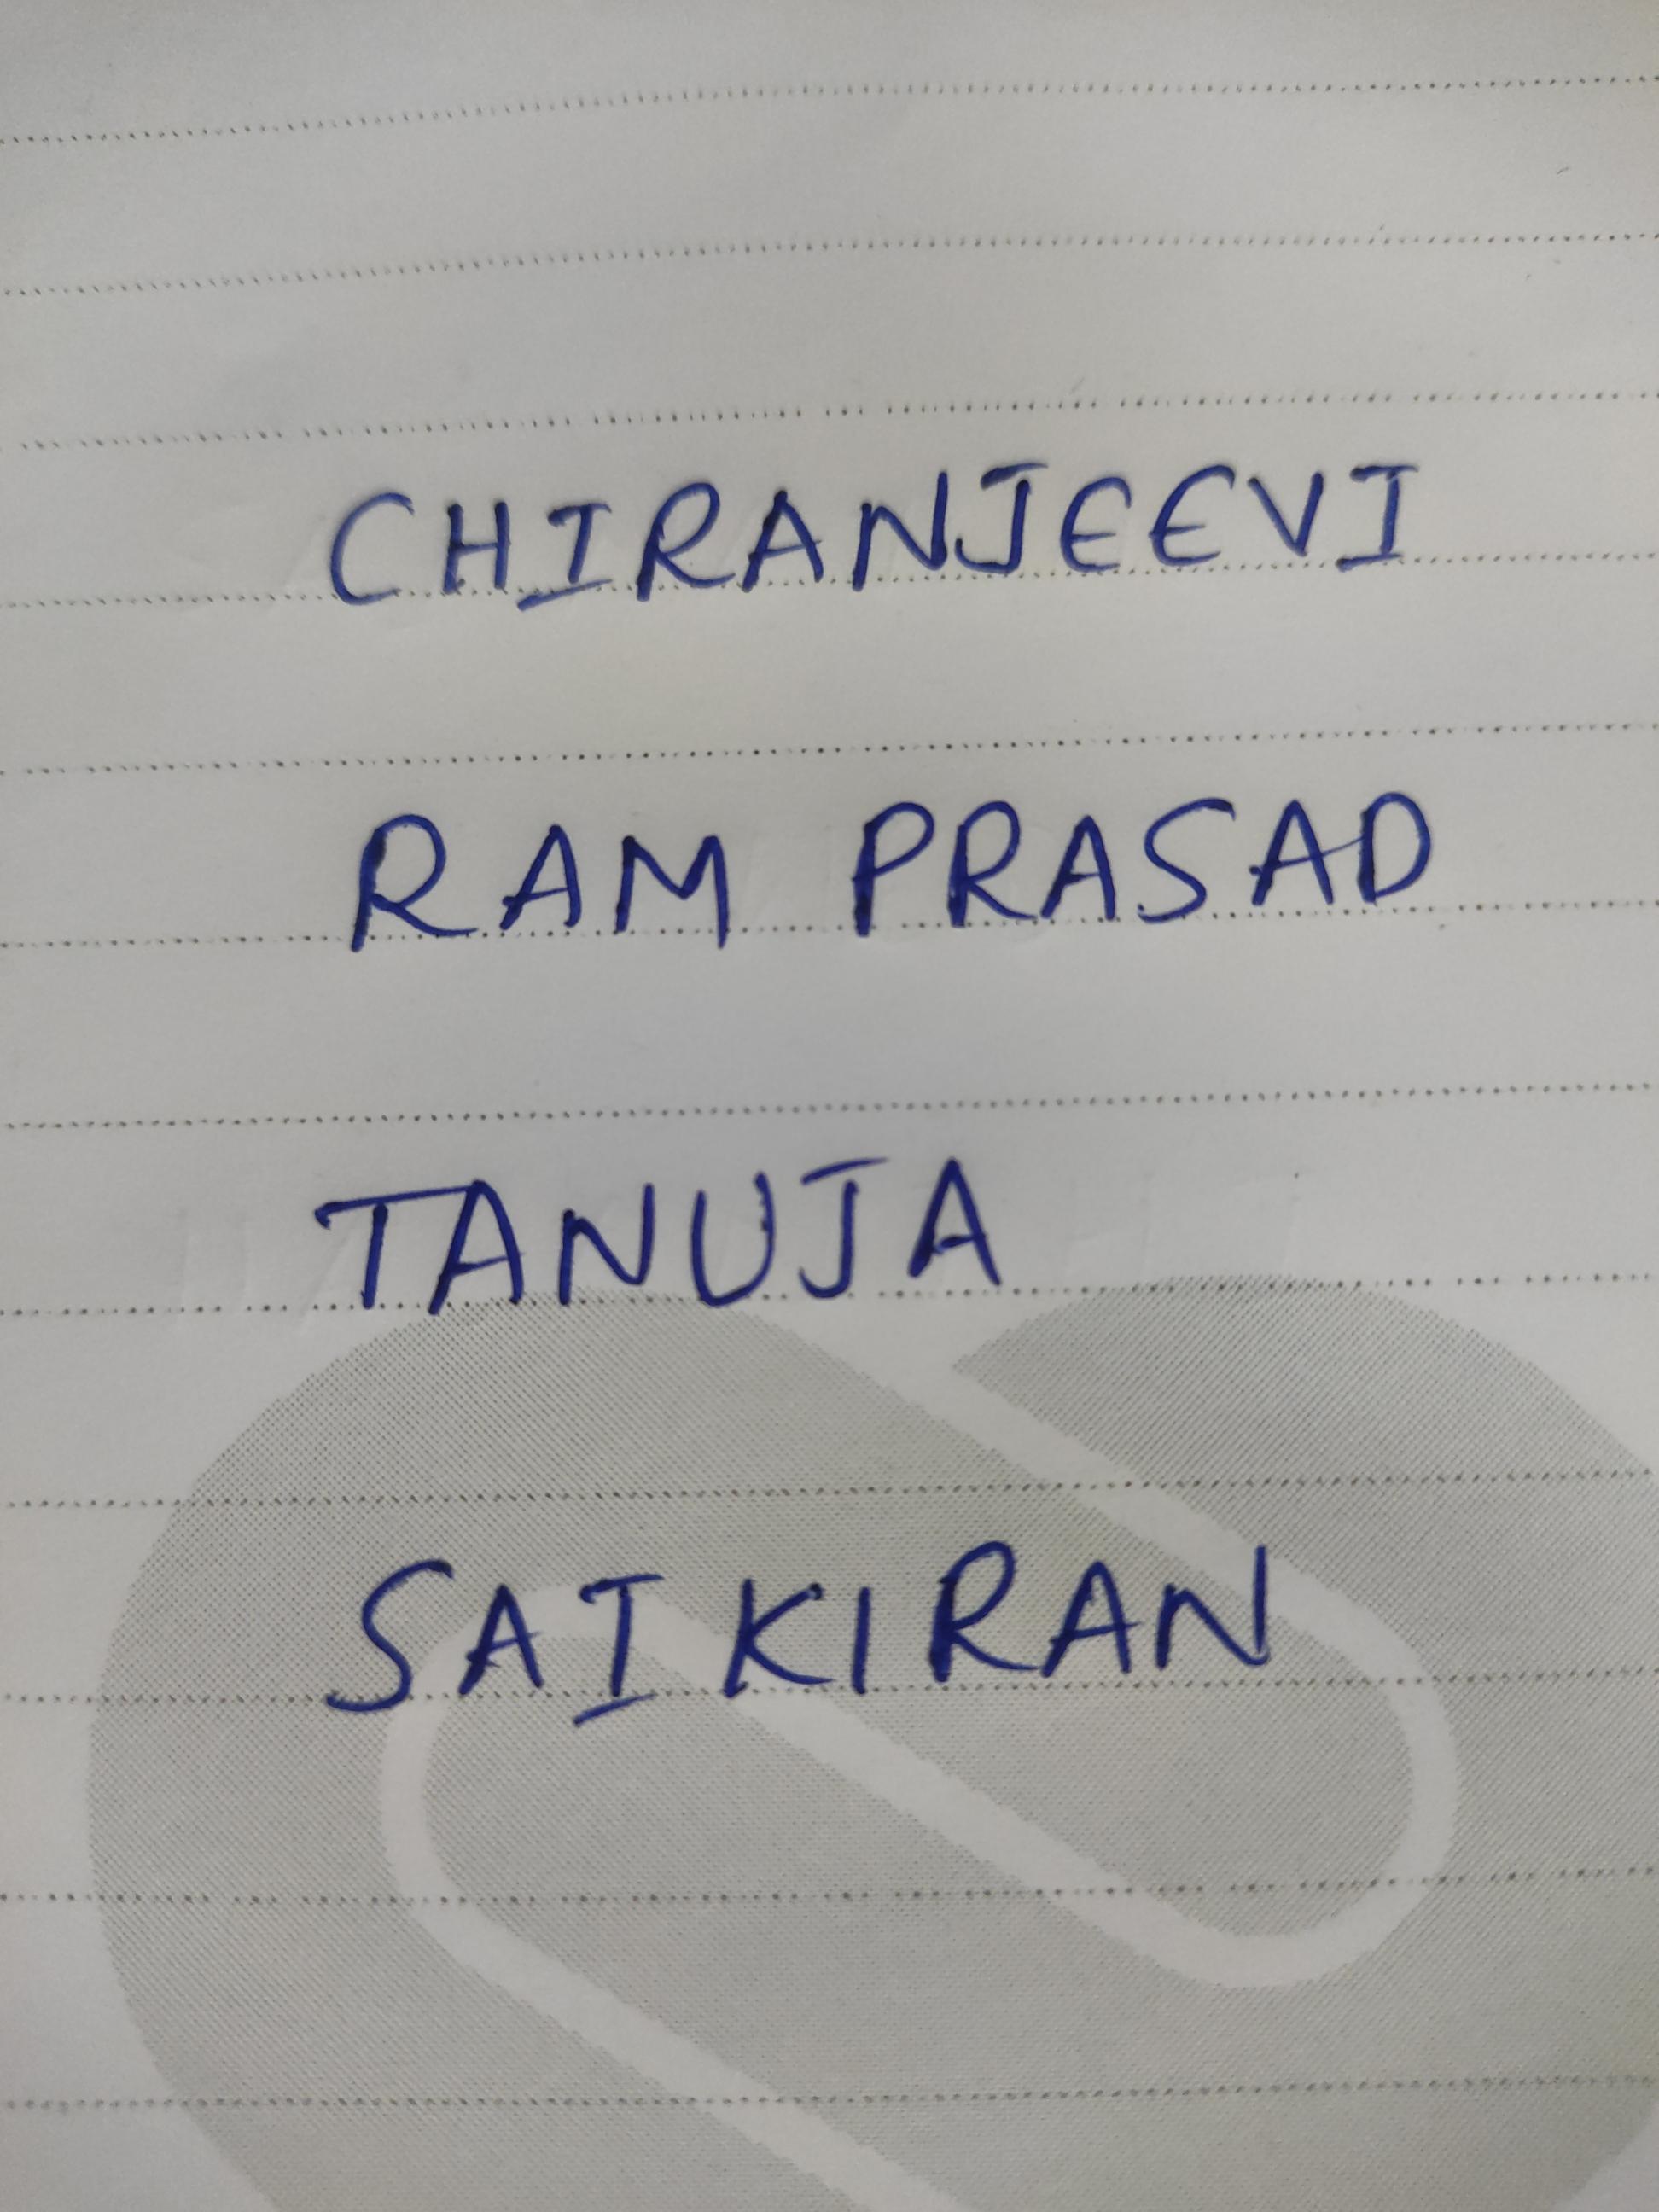 CHIRANJEEVI
RAM PRASAD
TANUJA
SAI KIRAN